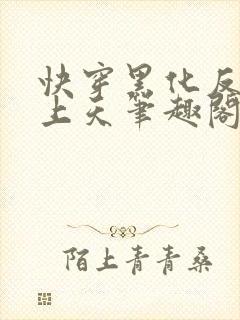 快穿黑化反
上天笔趣阁
陌上青青桑